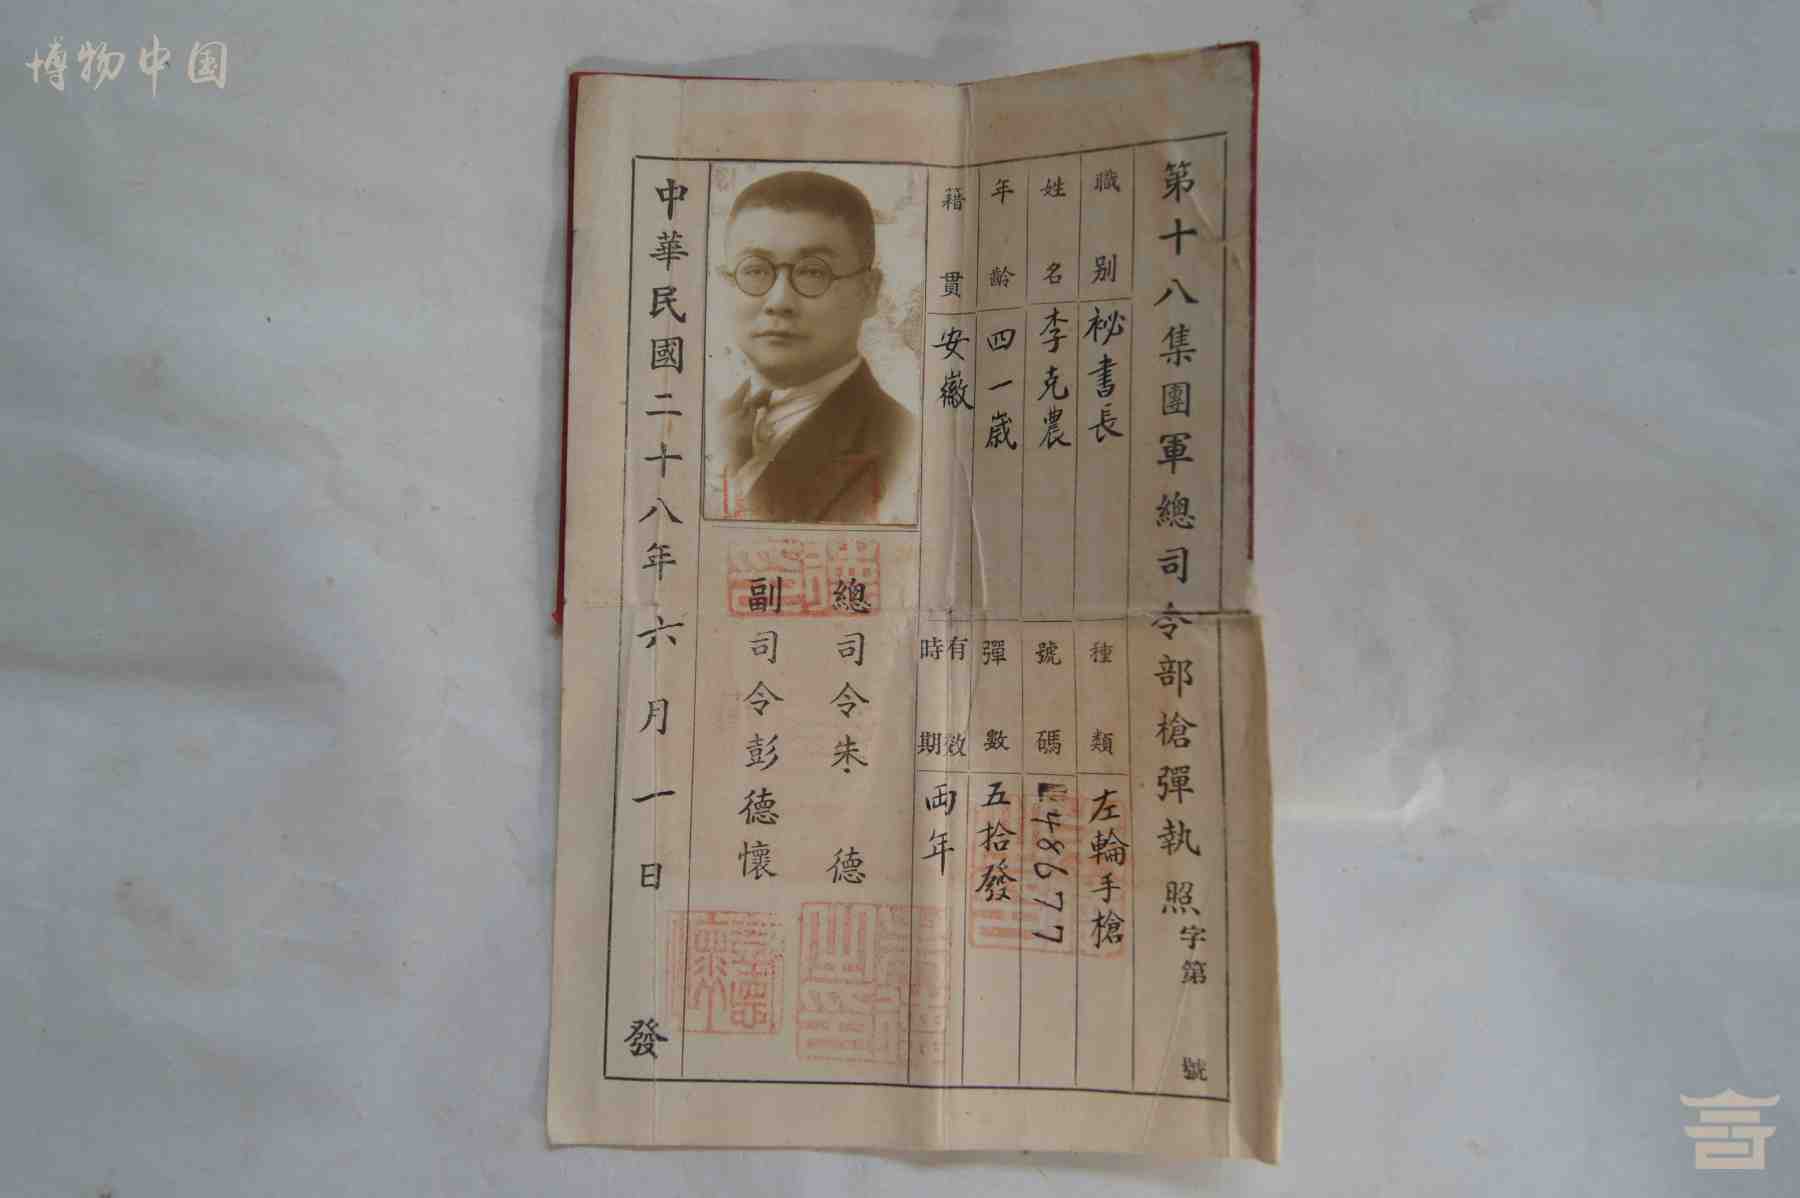 博物中国
第十八集團軍總司令部槍彈執照字第 號
職別 祕書長
種類 左輪手槍
姓名 李克農
號碼 48677
年齡 四一歲
彈數 五拾發
籍貫 安徽
有效時期 兩年
總司令朱 德
副司令彭德懷
中華民國二十八年六月一日發